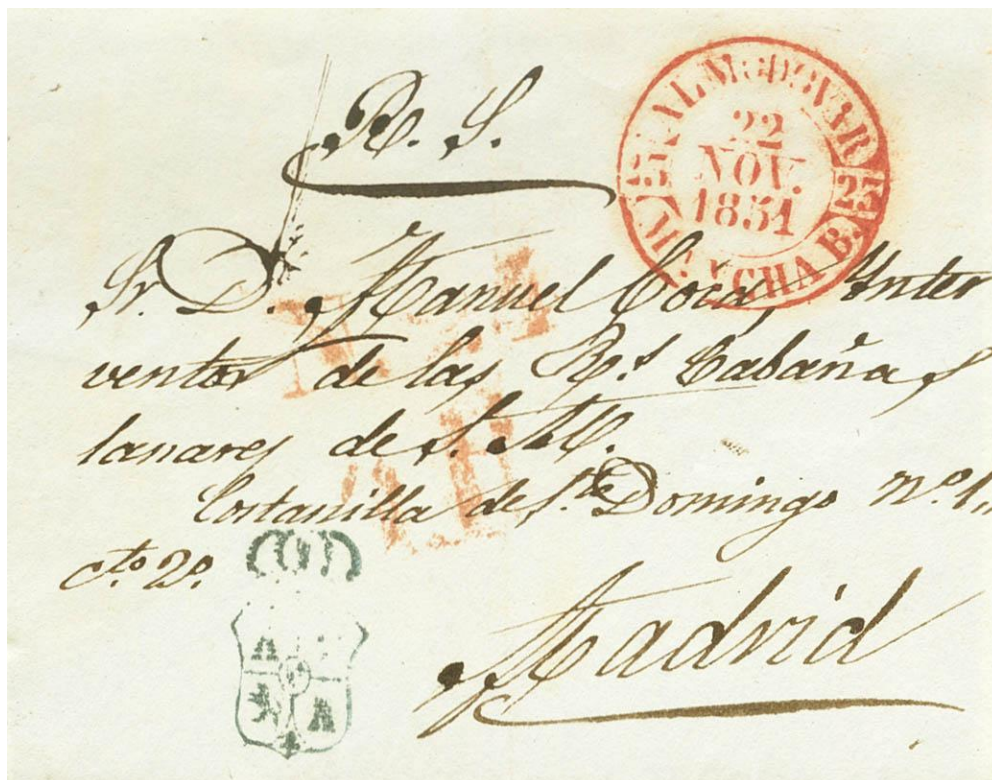 R. S.
22
NOV.
1851
25
Sr. D. Manuel Coca, Inter
ventor de las Rs. Cabañas
lanares de S. M.
Costanilla de Sto Domingo nº 1
cto. 2o.
Madrid